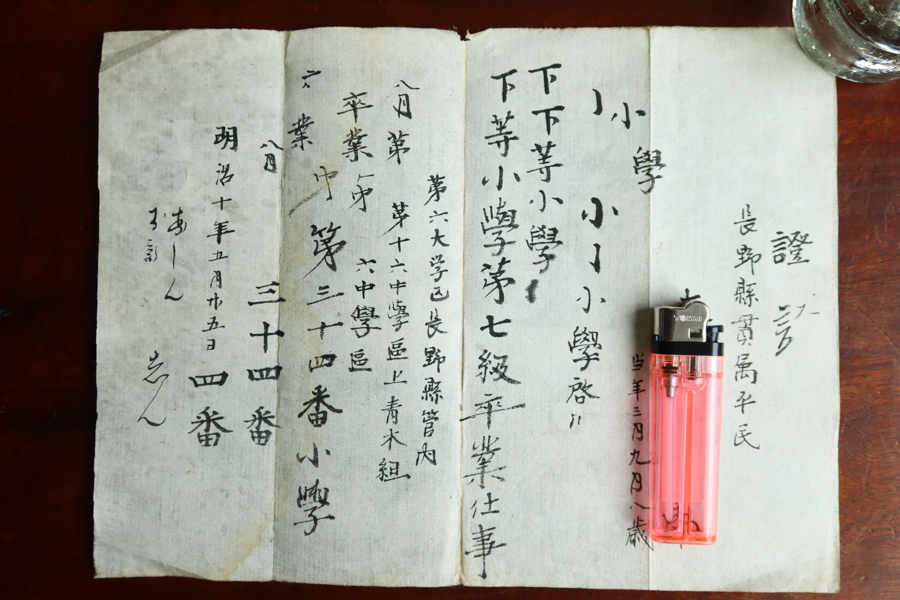 證
長野縣貫属平民
当年三月九月八歳
小學
小
小學啓
下下等小學
下等小學第七級卒業仕事
第六大学区長野縣管内
八月第 第十六中學區上青木組
卒業第 六中學區
第三十四番小學
業
八月 三十四番
明治十年五月廿五日 四番